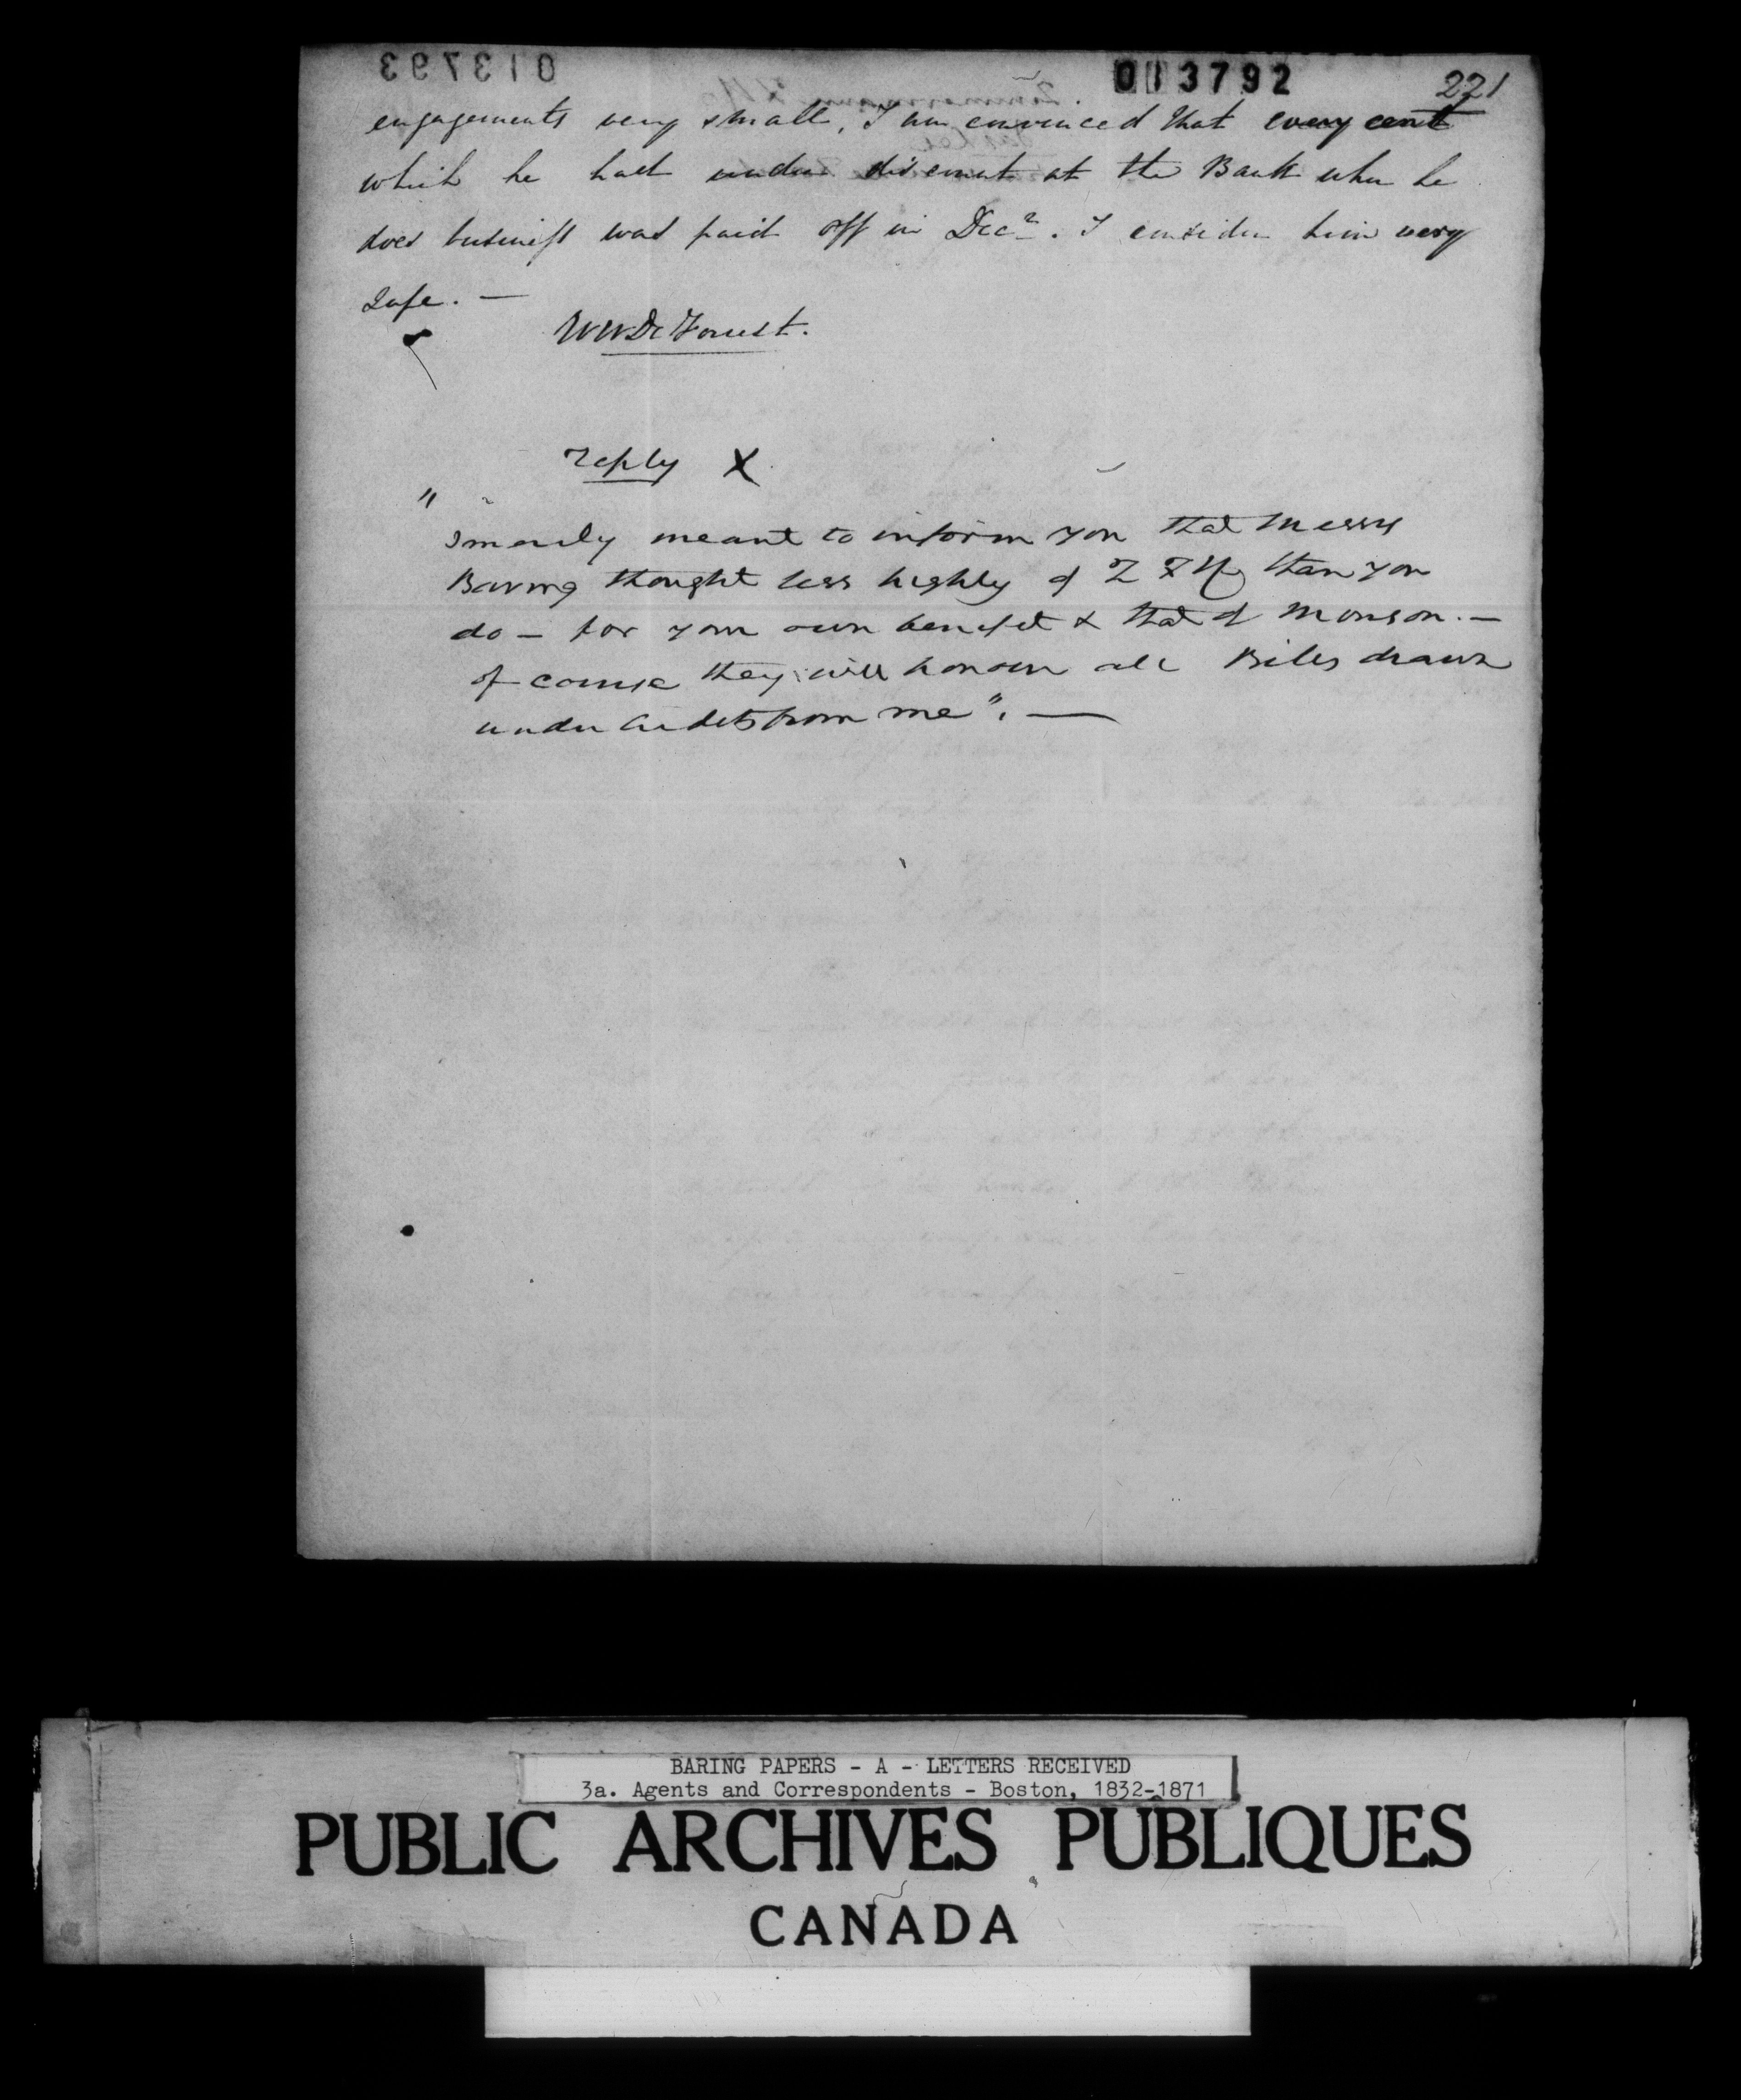 013793
013792 221
engagements very small, I am convinced that every cent
which he had under discount at the Bank when he
does business was paid off in Decr. I consider him very
safe. —
W W De Forrest.
reply X
" I merely meant to inform you that Messrs
Baring thought less highly of Z F & Co than you
do — for your own benefit & that of Monson. —
of course they will honour all Bills drawn
under Credits from me". —
BARING PAPERS - A - LETTERS RECEIVED
3a. Agents and Correspondents - Boston, 1832-1871
PUBLIC ARCHIVES PUBLIQUES
CANADA